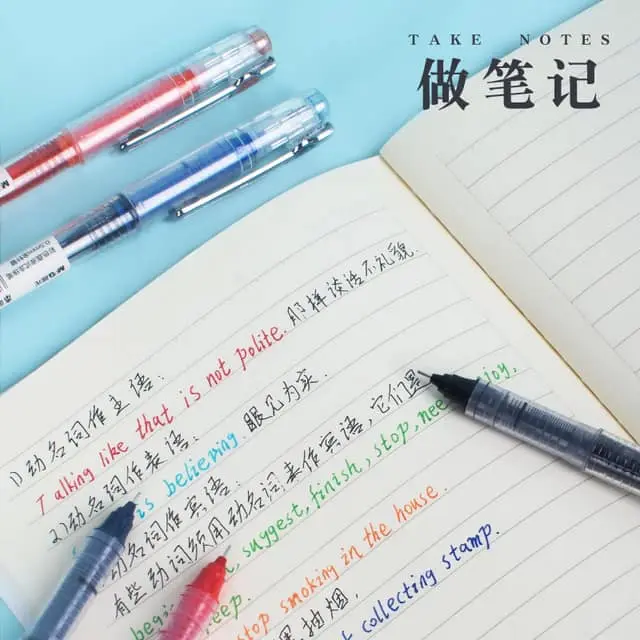 TAKE NOTES
做笔记
M&G
1)动名词作主语:
Talking like that is not polite. 那样谈话不礼貌.
2)动名词作表语:
is believing. 眼见为实.
动名词作宾语:
有些动词须用动名词来作宾语,它们是
suggest, finish, stop, need, enjoy,
begin keep
stop smoking in the house.
抽烟.
collecting stamp.